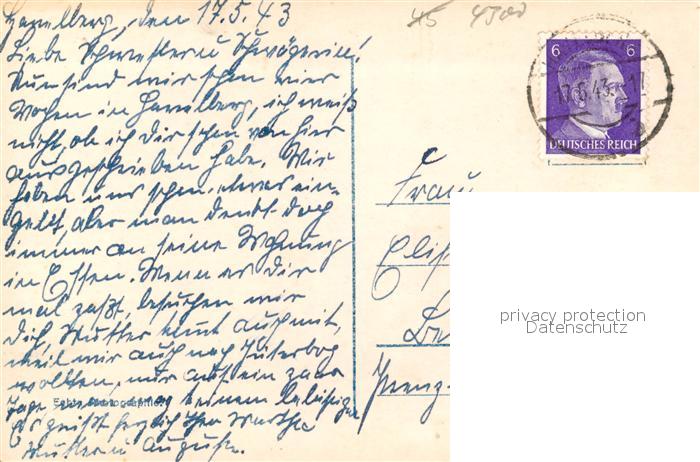 Havelberg, den 17.5.43
Liebe Schwester u Schwägerin!
Nun sind wir schon vier
Wochen in Havelberg, ich weiß
nicht, ob ich Dir schon von hier
aus geschrieben habe. Wir
haben uns schon etwas ein-
gelebt, aber man denkt doch
immer an seine Wohnung
in Essen. Wenn es Dir
mal paßt, besuchen wir
Dich, Mutter kommt auch mit,
weil wir auch nach Jüterbog
wollten, nur auf ein paar
Tage
Es grüßt herzlich Ihre Martha
Mutter u Auguste.
Echte Photographie
45 4500
6 6
17.5.43
DEUTSCHES REICH
Frau
Elis
Be
Prenz
privacy protection
Datenschutz